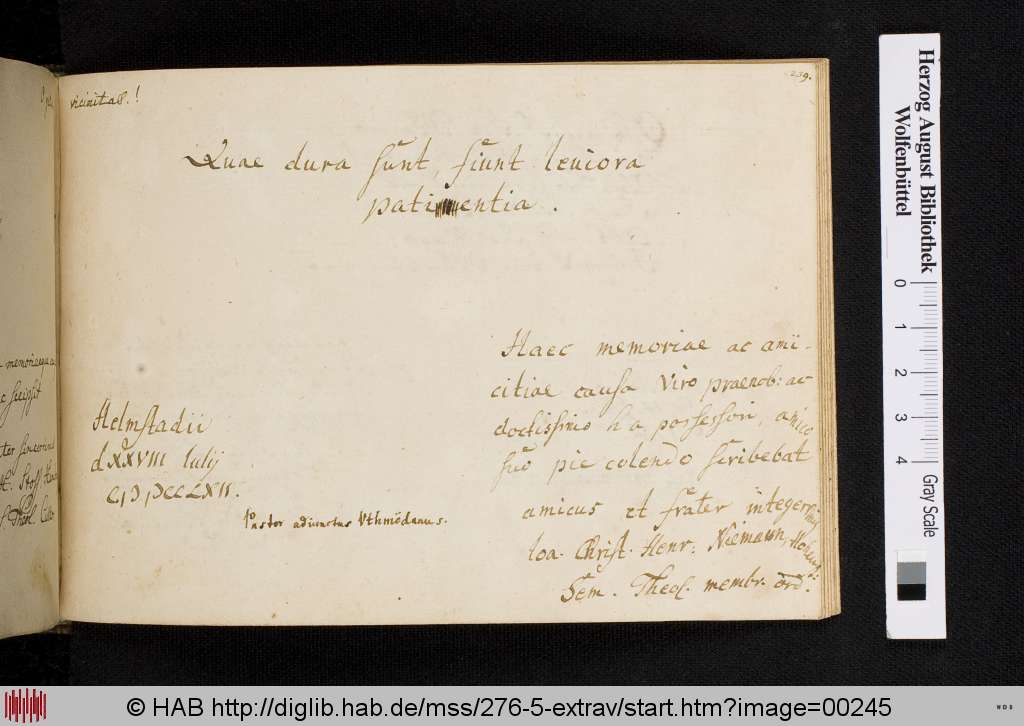 239.
vicinitas.!
Quae dura sunt, fiunt leviora
patientia.
Haec memoriae ac ami-
citiae causa Viro praenob: ac
doctissimo h a possessori, amico
suo pie colendo scribebat
amicus et frater integerrimus
Ioa. Christ. Henr: Niemann,
Sem. Theol. membr. ord.
Helmstadii
d XXVIII Iulij
CIↃIↃCCLXII.
Pastor adiunctus Vthmödanus.
memoriaeque
scripsit
Herzog August Bibliothek
Wolfenbüttel
0 1 2 3 4
Gray Scale
© HAB http://diglib.hab.de/mss/276-5-extrav/start.htm?image=00245
WDB